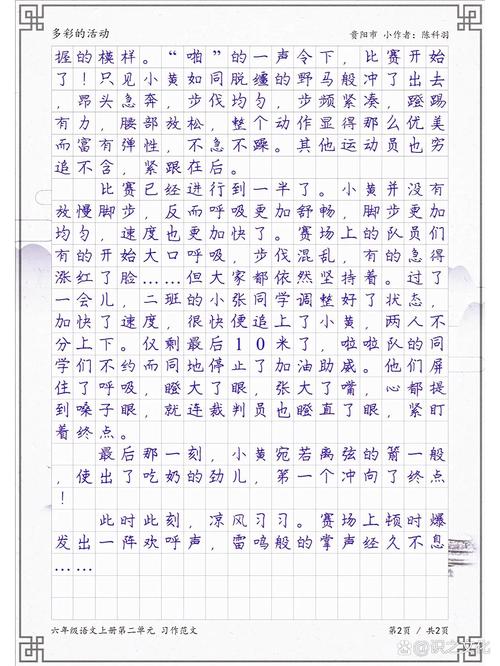 多彩的活动
贵阳市 小作者：陈科羽
握的模样。“啪”的一声令下，比赛开始
了！只见小黄如同脱缠的野马般冲了出去
，昂头急奔，步伐均匀，步频紧凑，蹬踢
有力，腰部放松，整个动作显得那么优美
而富有弹性，不急不躁。其他运动员也穷
追不舍，紧跟在后。
比赛已经进行到一半了。小黄并没有
放慢脚步，反而呼吸更加舒畅，脚步更加
均匀，速度也更加快了。赛场上的队员们
有的开始大口呼吸，步伐混乱，有的急得
涨红了脸……但大家都依然坚持着。过了
一会儿，二班的小张同学调整好了状态，
加快了速度，很快便追上了小黄，两人不
分上下。仅剩最后10米了，啦啦队的同
学们不约而同地停止了加油助威。他们屏
住了呼吸，瞪大了眼，张大了嘴，心都提
到嗓子眼，就连裁判员也瞪直了眼，紧盯
着终点。
最后那一刻，小黄宛若离弦的箭一般
，使出了吃奶的劲儿，第一个冲向了终点
！
此时此刻，凉风习习。赛场上顿时爆
发出一阵欢呼声，雷鸣般的掌声经久不息
……
六年级语文上册第二单元 习作范文
第2页 / 共2页